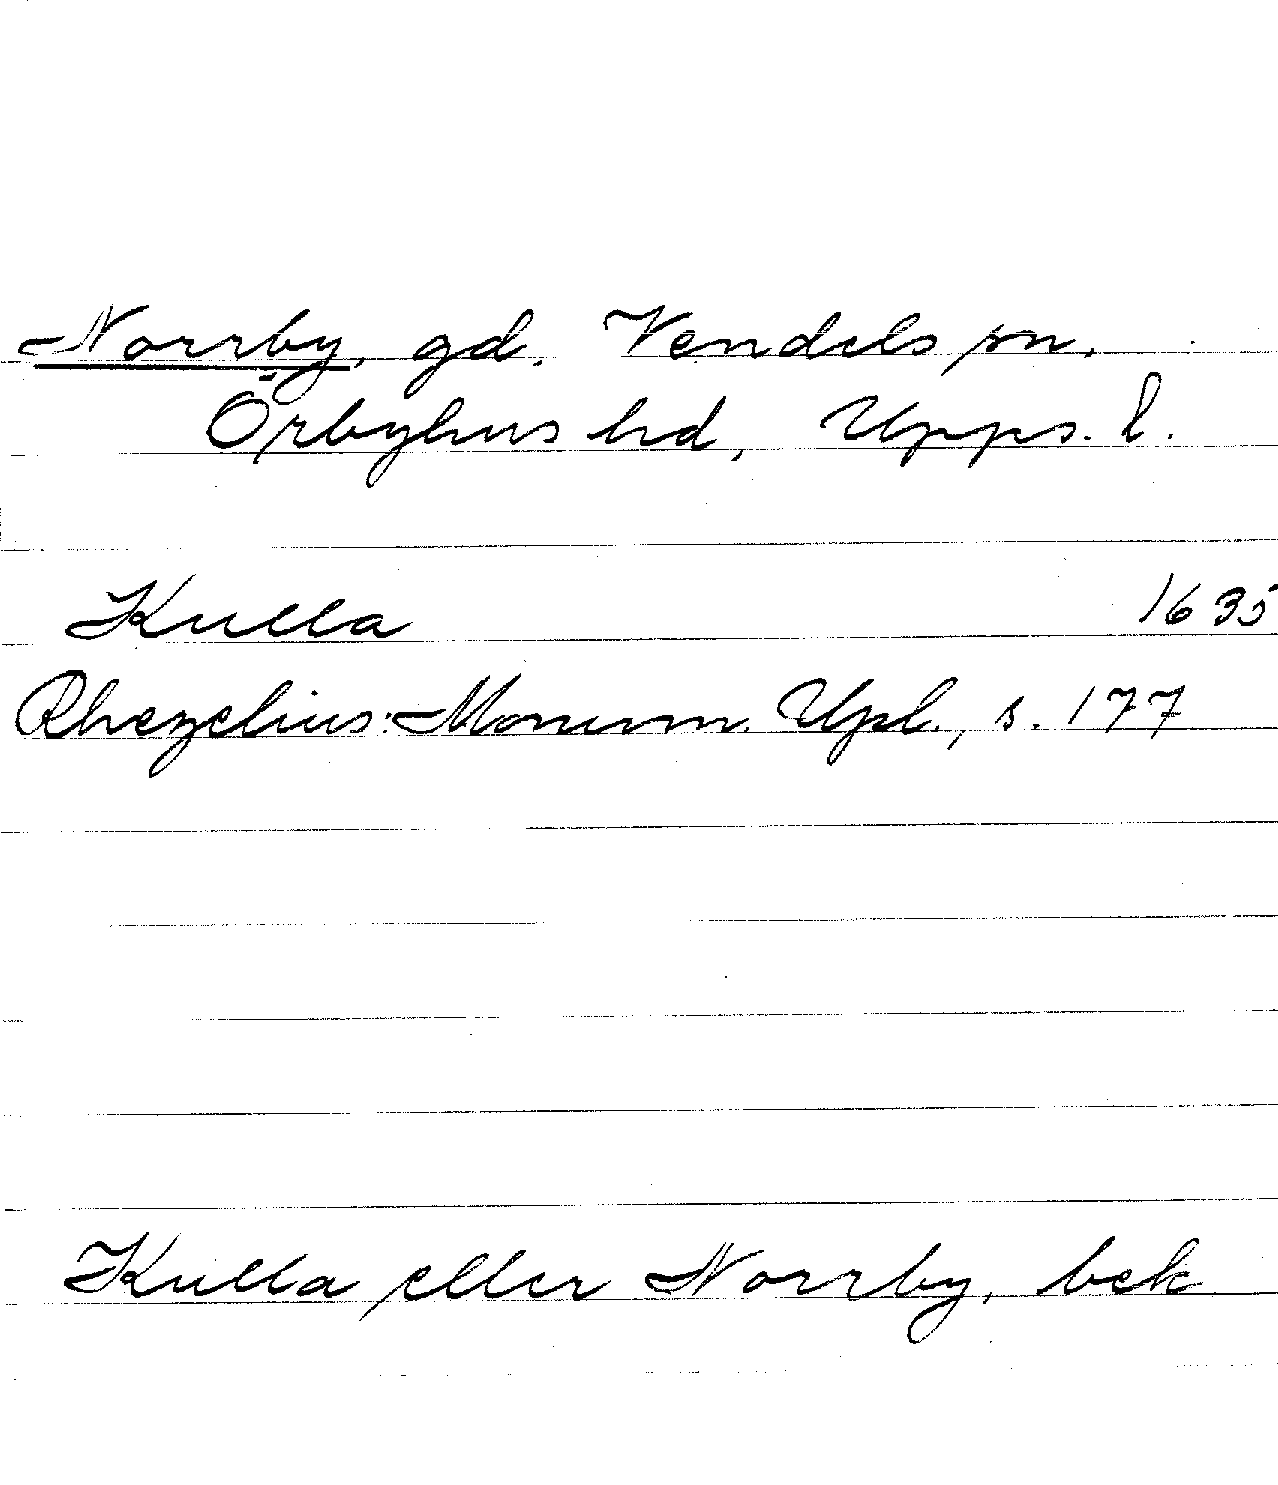 Norrby, gd. Vendels sn.
Örbyhus hd, Upps. l.
Kulla 1635
Rhezelius: Monum. Upl., s. 177
Kulla eller Norrby, bek